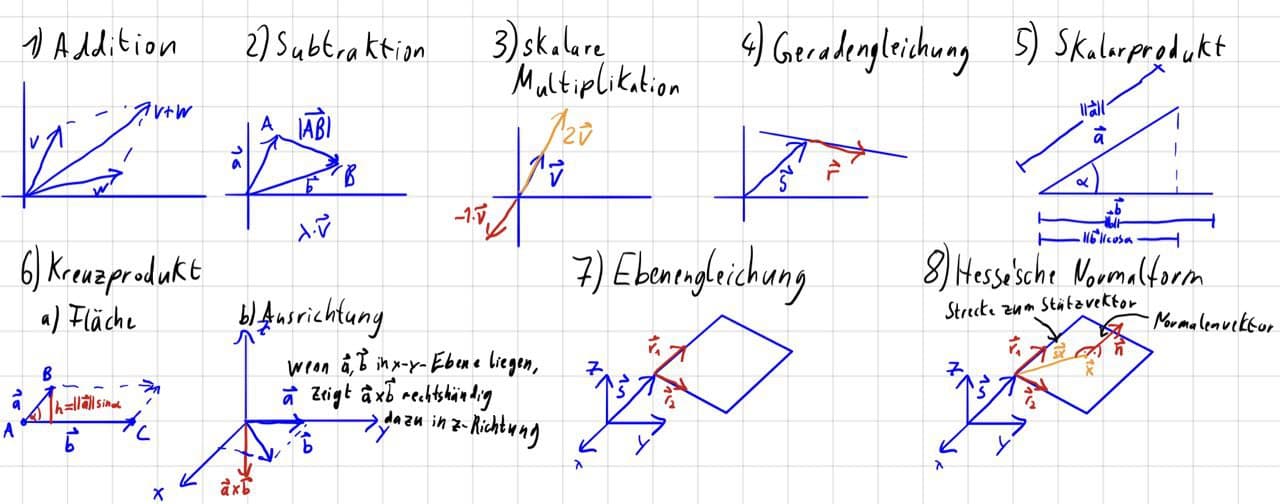 1) Addition
v
v+w
w
2) Subtraktion
A
|AB⃗|
a⃗
B
b⃗
λ·v⃗
3) skalare
Multiplikation
2v⃗
v⃗
-1·v⃗
4) Geradengleichung
s⃗
r⃗
5) Skalarprodukt
||a⃗||
a⃗
α
b⃗
||b⃗||
||b⃗||cosα
6) Kreuzprodukt
a) Fläche
B
a⃗
α
h=||a⃗||sinα
A
b⃗
C
b) Ausrichtung
z
wenn a⃗, b⃗ in x-y-Ebene liegen,
zeigt a⃗xb⃗ rechtshändig
dazu in z-Richtung
a⃗
y
b⃗
x
a⃗xb⃗
7) Ebenengleichung
z
s⃗
r⃗₁
r⃗₂
y
x
8) Hesse'sche Normalform
Strecke zum Stützvektor
Normalenvektor
z
s⃗
r⃗₁
n⃗
x⃗
r⃗₂
y
x